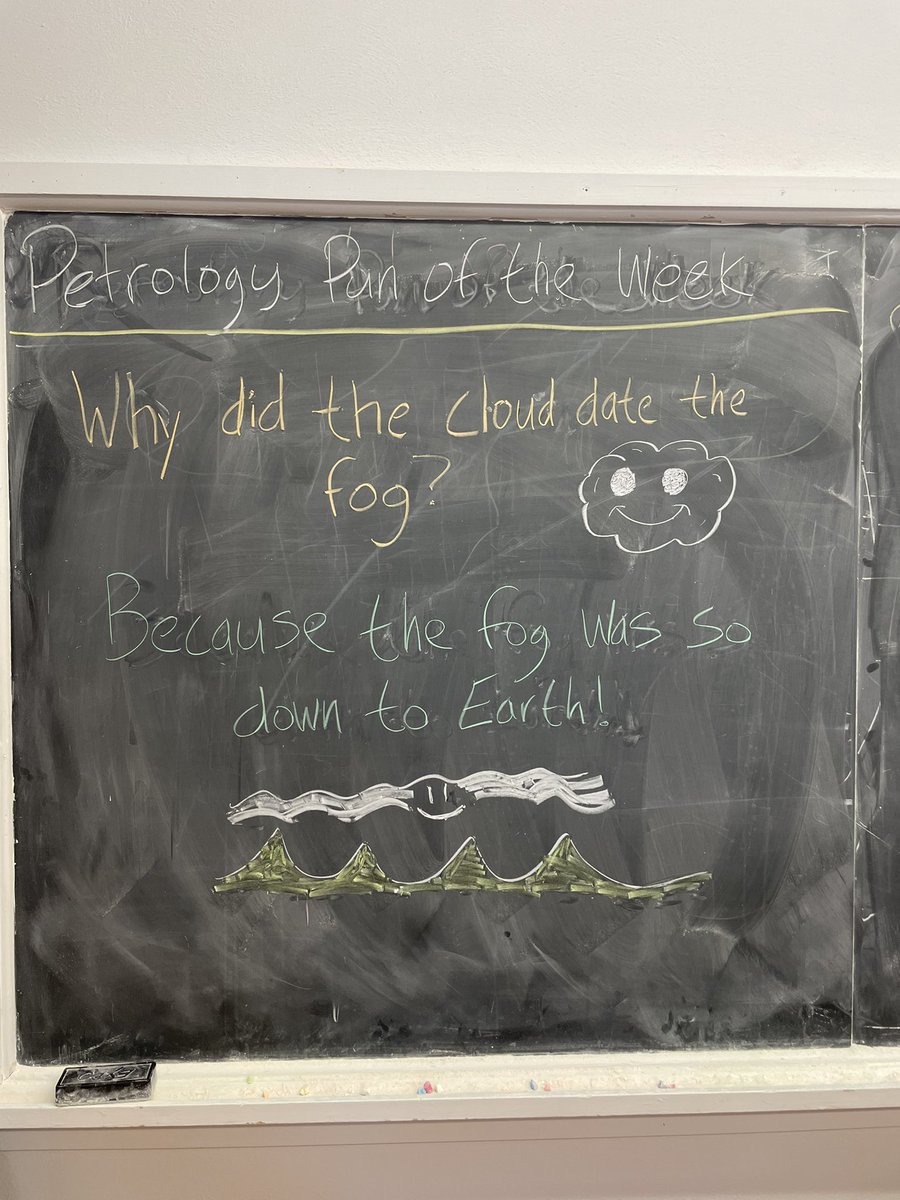 Petrology Pun of the Week
Why did the cloud date the
fog?
Because the fog was so
down to Earth!